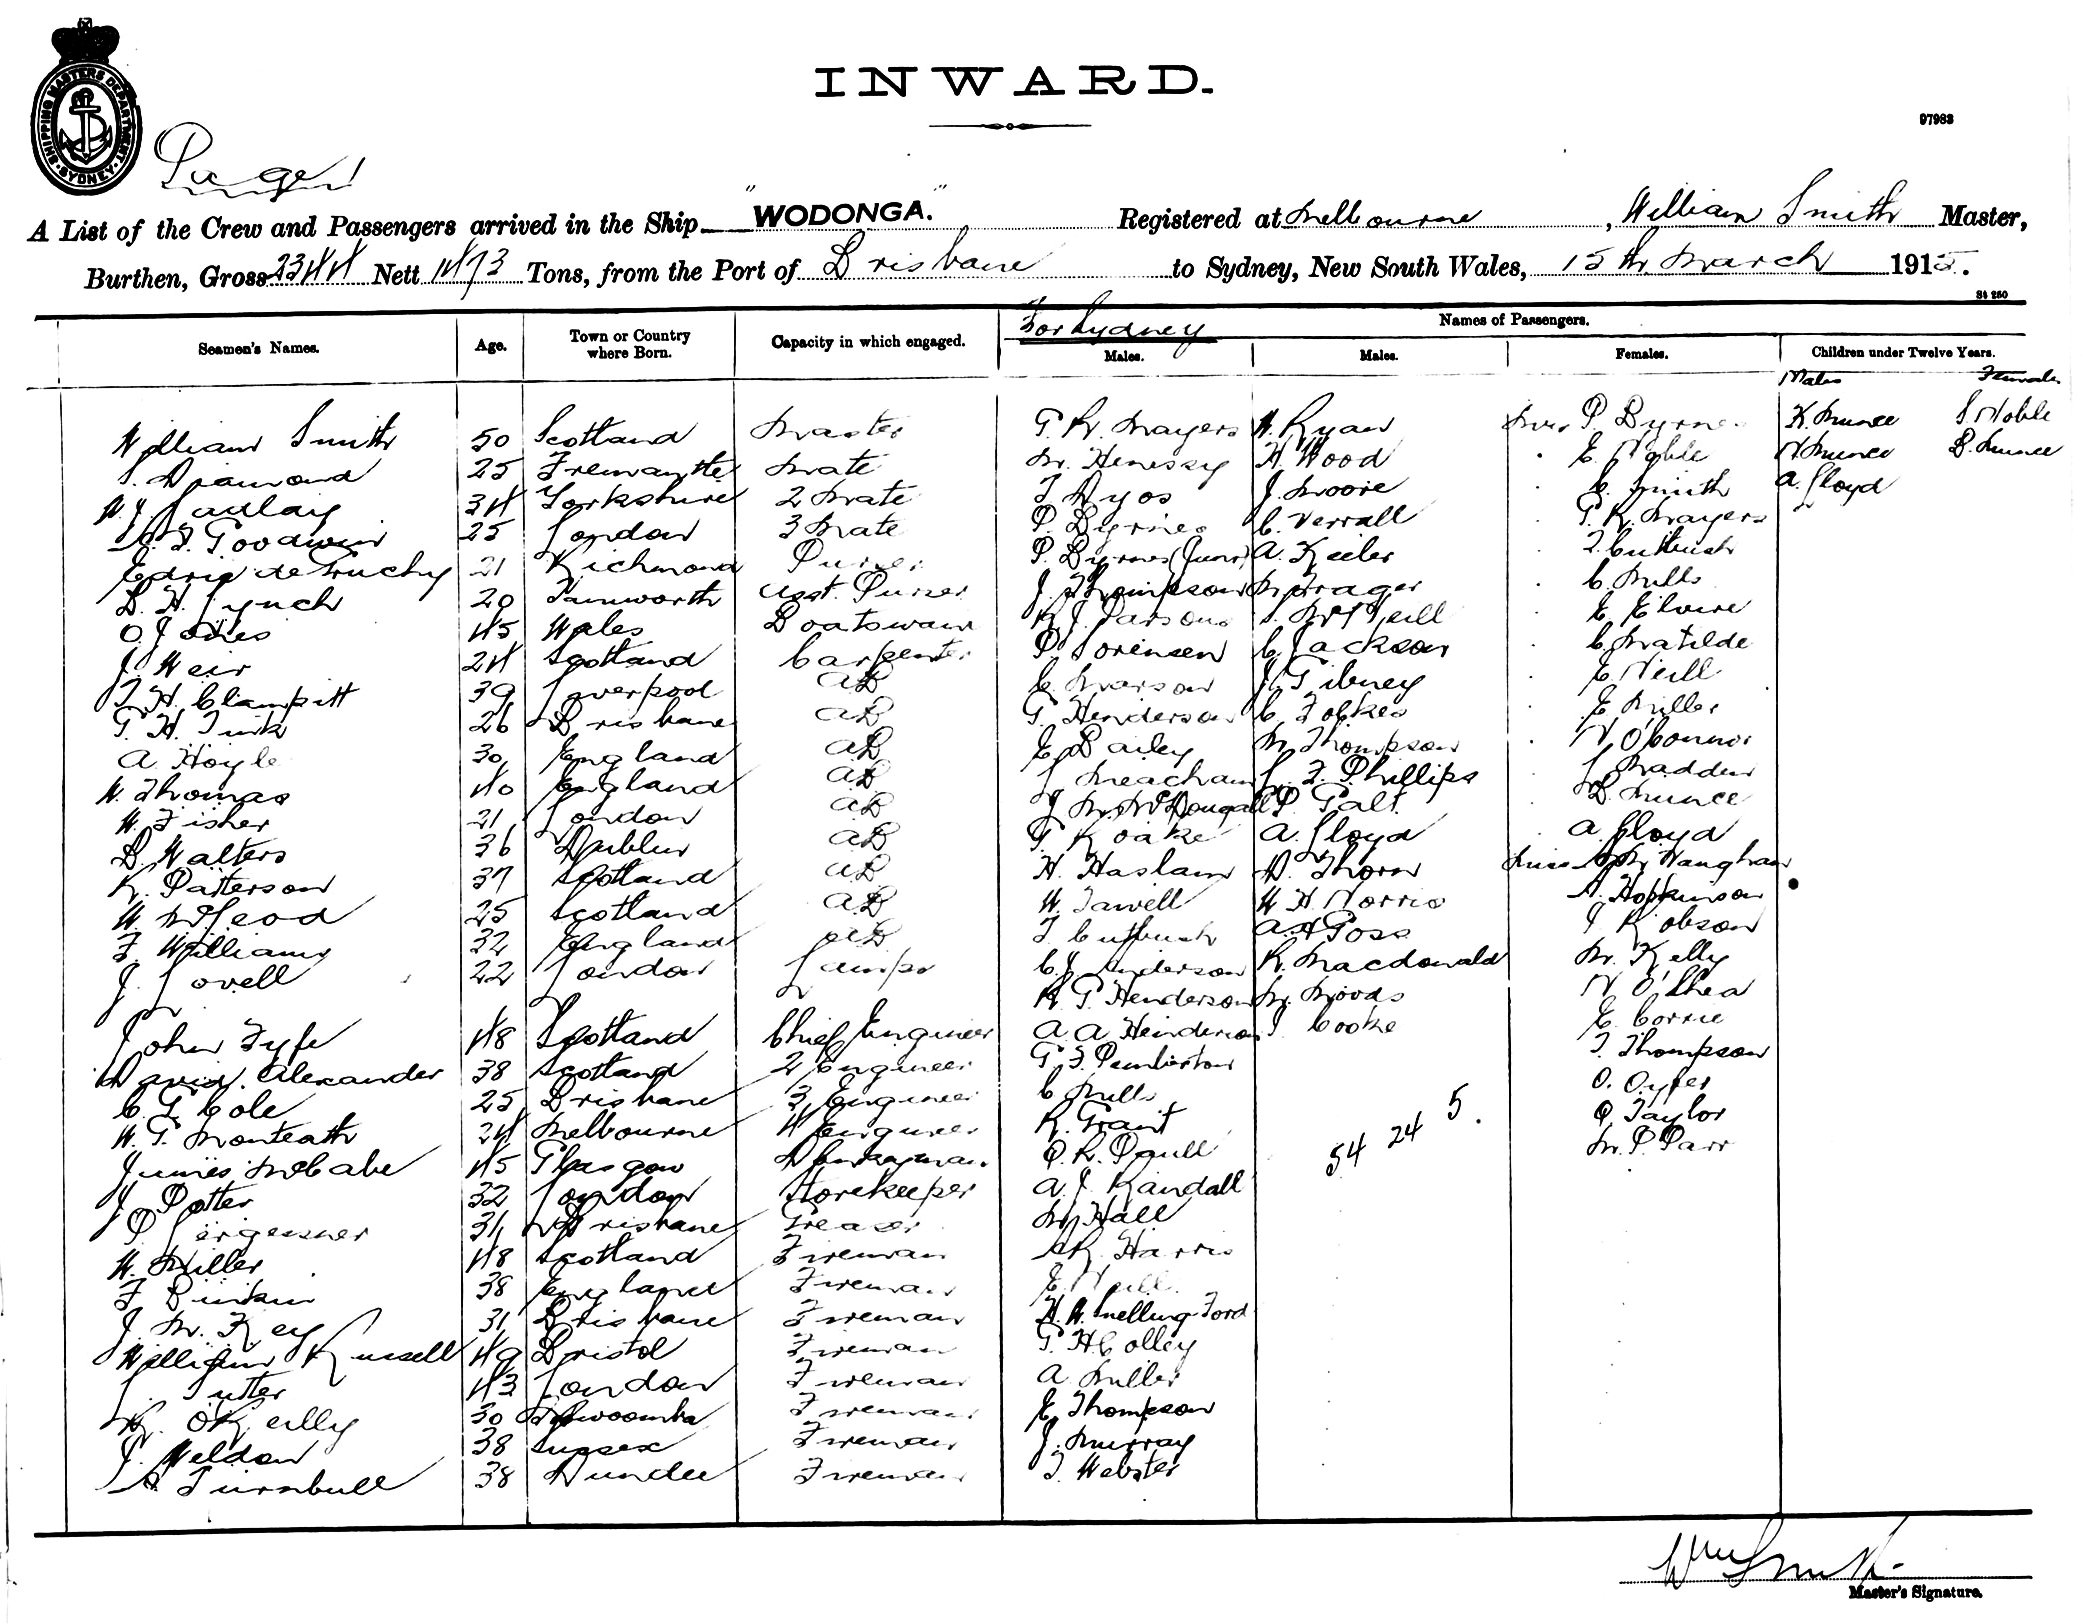 INWARD.
97983
SHIPPING MASTERS DEPARTMENT
SYDNEY
Page 1
A List of the Crew and Passengers arrived in the Ship "WODONGA." Registered at Melbourne, William Smith Master,
Burthen, Gross 2344 Nett 1473 Tons, from the Port of Brisbane to Sydney, New South Wales, 15th March 1915.
S4 250
Seamen's Names. Age. Town or Country where Born. Capacity in which engaged. For Sydney Names of Passengers.
Males. Males. Females. Children under Twelve Years.
Males Females
William Smith 50 Scotland Master G. R. Mayers W. Ryan Mrs P. Byrnes K. Munce S Noble
S. Diamond 25 Fremantle Mate M. Henessy H. Wood " E. Noble N Munce B. Munce
W. J. 34 Yorkshire 2 Mate T Dyos J. Moore " C. Smith A. Lloyd
Goodwin 25 London 3 Mate P. Byrnes C. Verrall " G. R. Mayers
Edric de Gruchy 21 Richmond Purser P. Byrnes (Junr) A. Keiler " T. Cutbush
B. H. Lynch 20 Tamworth Asst. Purser J. Thompson M. Prager " C. Mills
O. Jones 45 Wales Boatswain R. J. Parsons S. McNeill " E. Elvire
J. Weir 24 Scotland Carpenter P. Sorensen C. Jackson " C. Matilde
T. H. Clampitt 39 Liverpool AB C. Marson J. Gibney " E. Neill
G. H. Turk 26 Brisbane AB G. Henderson C. Fobkes " E Miller
A. Hoyle 30 England AB E. Bailey M. Thompson " N O'Connor
W. Thomas 40 England AB L Meacham L. F. Phillips " L Madden
W. Fisher 21 London AB J. M. McDougall P. Galt " B. Munce
B. Walters 36 Dublin AB G. Roake A. Lloyd " A. Lloyd
R. Patterson 37 Scotland AB H. Haslam D. Thorn Miss Vaughan
W. McLeod 25 Scotland AB W. Tawell W. H. Norris A. Hopkinson
F. Williams 32 England AB T. Cutbush A. H Goss J Robson
J. Lovell 22 London Lamps C. J. Anderson R. Macdonald M. Kelly
R. G. Henderson M. Woods N. O'Shea
John Fyfe 48 Scotland Chief Engineer A. A Henderson J. Cooke E. Corrie
David Alexander 38 Scotland 2 Engineer G. F. Pemberton T. Thompson
C. G. Cole 25 Brisbane 3 Engineer C Mills O. Oyfer
W. G. Monteath 24 Melbourne 4 Engineer R. Grant 54 24 5. O. Taylor
James McCabe 45 Glasgow Donkeyman O. R. Paull M. P. Parr
J. Potter 32 London Storekeeper A. J. Randall
P. 31 Brisbane Greaser M. Hall
W. Miller 48 Scotland Fireman Harris
F. 38 England Fireman E. Neill
J. M. Key 31 Brisbane Fireman H. W. Snelling-Ford
William Russell 49 Bristol Fireman G. H. Colley
Tutter 43 London Fireman A. Miller
O'Reilly 30 Toowoomba Fireman E. Thompson
Weldon 38 Sussex Fireman J. Murray
A. Turnbull 38 Dundee Fireman T. Webster
Wm Smith
Master's Signature.